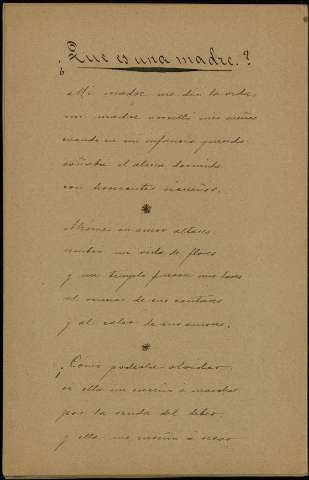 ¿Que es una madre?
Mi madre me dió la vida,
mi madre meció mis sueños
cuando en mi infancia querida
soñaba el alma dormida
con horizontes risueños.
en amor altares
sembró mi vida de flores
y un templo fueron mis lares
al de sus cantares
y al calor de sus amores.
¡Cómo poderla olvidar
si ella me enseñó á marchar
por la senda del deber,
y ella me enseñó á